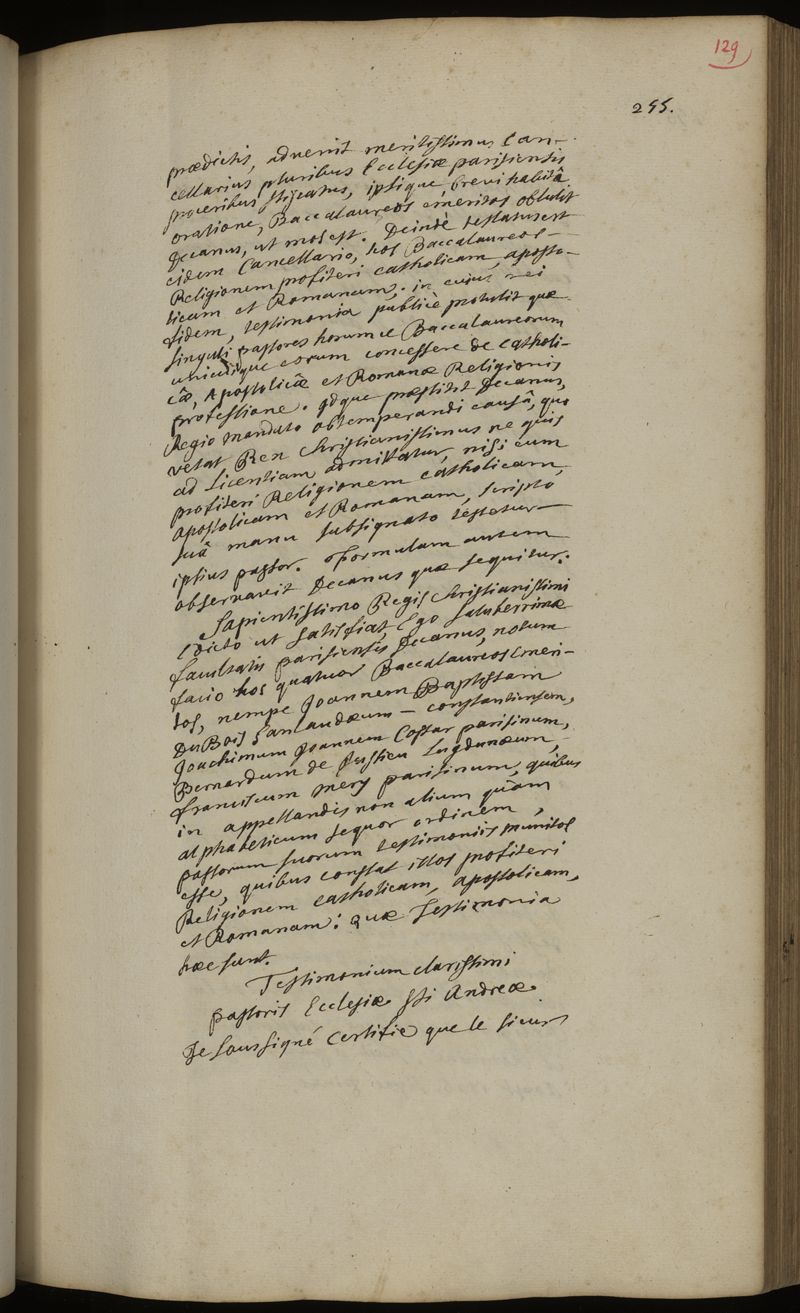 129
255.
prædictis, advenit meritissimus Can-
cellarius pluribus Ecclesiæ parisiensis
proceribus stipatus, ipsique, brevi habitâ
oratione, Baccalaureos emeritos obtulit
Decanus, ut mos est. Deinde testatus est
eidem Cancellario, hos Baccalaureos
Religionem profiteri catholicam, aposto-
licam et Romanam; in cuius rei
fidem, testimonia publicè protulit quæ
singuli pastores horumce Baccalaureorum
unicuique eorum concessere de catholi-
câ, Apostolicâ et Romanæ Religionis
professione. qdque præstitit Decanus,
Regio mandato obtemperandi causâ, quo
vetat Rex Christianissimus ne quis
ad Licentiam admittatur, nisi eum
profiteri Religionem catholicam,
apostolicam et Romanam, scripto
suâ manu subsignato testetur
ipsius pastor. Formulam autem
observavit Decanus quæ sequitur.
Sapientissimo Regis Christianissimi
Edicto ut satisfiat, Ego saluberrimæ
facultatis parisiensis Decanus, notum
facio hos quatuor Baccalaureos Emeri-
tos, nempe Joannem Baptistam
DuBois Sanlaudæum - constantiensem,
Joachimum Joannem Costar parisinum,
Bernardum de Jussieu Lugdunæum,
franciscum Mery parisinum, quibus
in appellandis non alium quàm
alphabeticum sequor ordinem,
pastorum suorum testimoniis munitos
esse, quibus constat illos profiteri
Religionem catholicam, apostolicam,
et Romanam: quæ testimonia
hæc sunt.
Testimonium clarissimi
pastoris Ecclesiæ Sti Andreæ.
Je soussigné certifie que le sieur